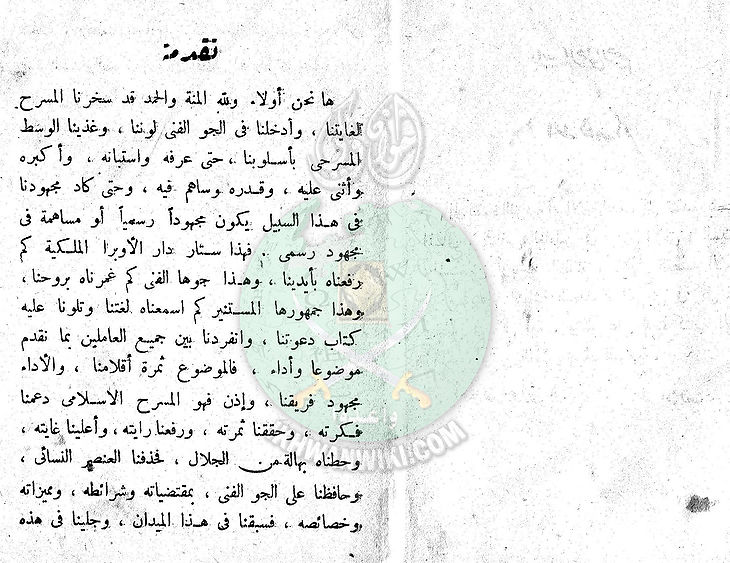 تقدمة
ها نحن أولاء ولله المنة والحمد قد سخرنا المسرح
لغايتنا ، وأدخلنا فى الجو الفنى لوننا ، وغذينا الوسط
المسرحى بأسلوبنا ، حتى عرفه واستبانه ، وأكبره
وأثنى عليه ، وقدره وساهم فيه ، وحتى كاد مجهودنا
فى هذا السبيل يكون مجهوداً رسمياً أو مساهمة فى
مجهود رسمى .. فهذا ستار دار الأوبرا الملكية كم
رفعناه بأيدينا ، وهذا جوها الفنى كم غمرناه بروحنا ،
وهذا جمهورها المستنير كم اسمعناه لغتنا وتلونا عليه
كتاب دعوتنا ، وانفردنا بين جميع العاملين بما نقدم
موضوعا وأداء ، فالموضوع ثمرة أقلامنا ، والأداء
مجهود فريقنا ، وإذن فهو المسرح الاسلامى دعمنا
فكرته ، وحققنا ثمرته ، ورفعنا رايته ، وأعلينا غايته ،
وحطناه بهالة من الجلال ، فحذفنا العنصر النسائى ،
وحافظنا على الجو الفنى ، بمقتضياته وشرائطه ، ومميزاته
وخصائصه ، فسبقنا فى هذا الميدان ، وجلينا فى هذه
IKHWANWIKI.COM